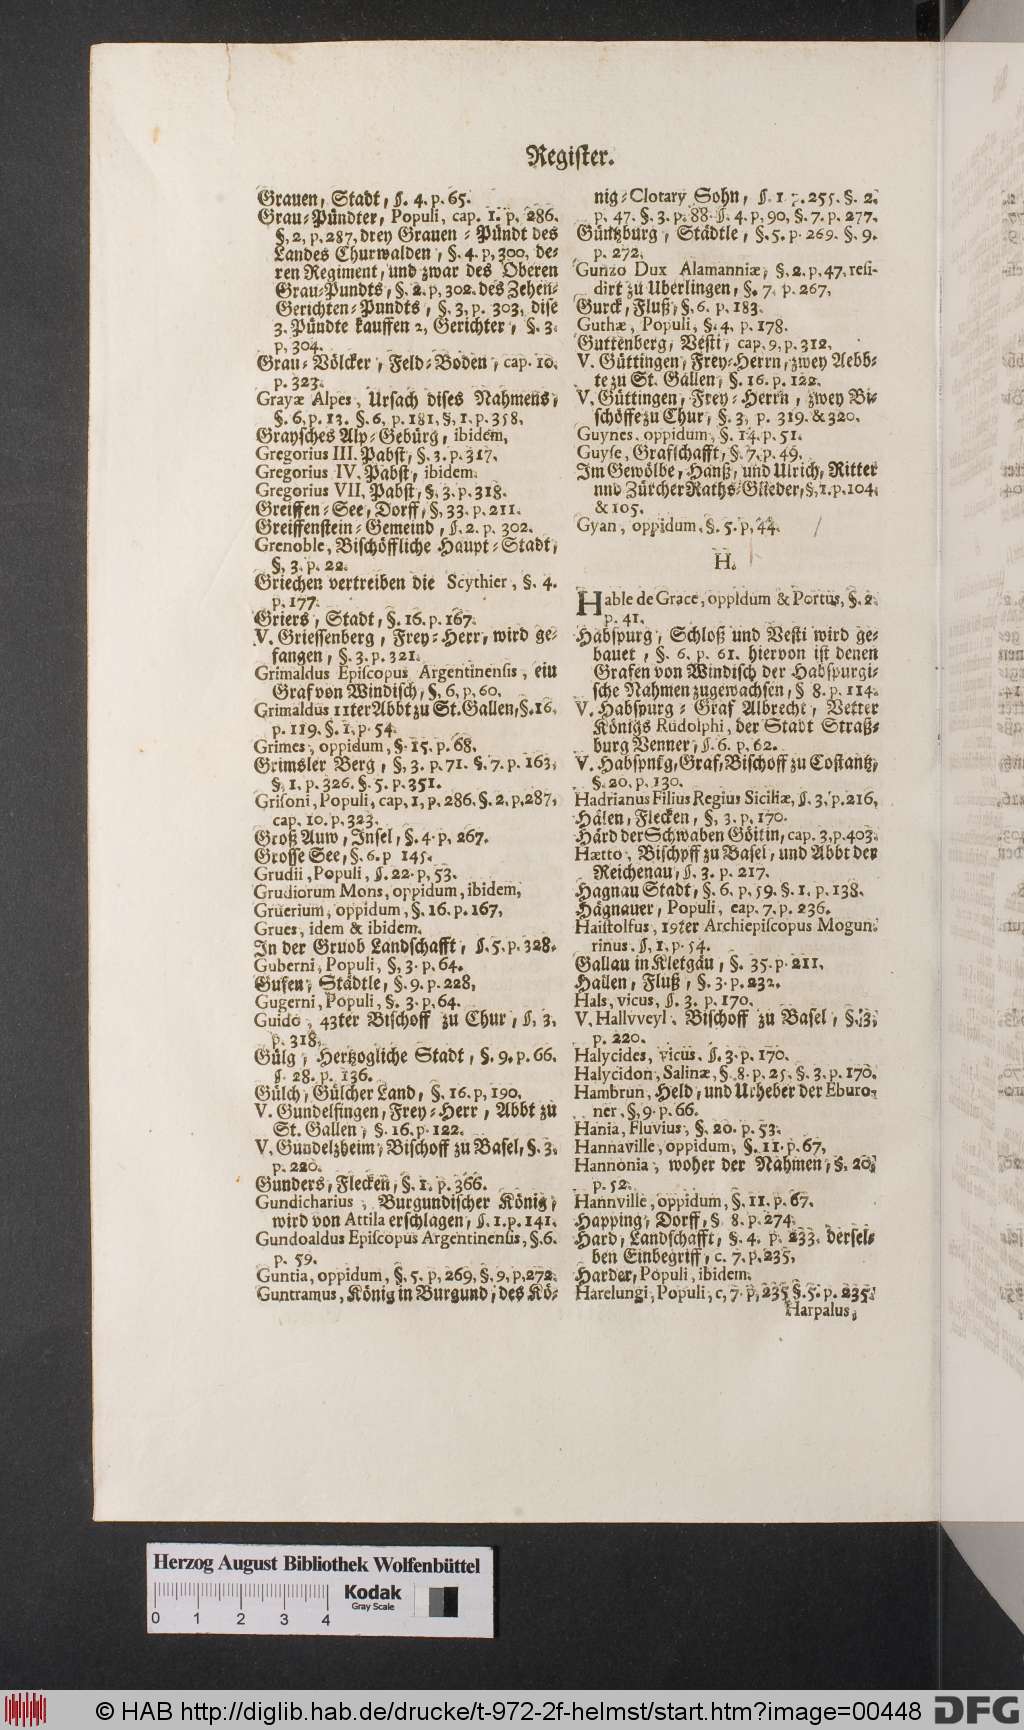 Register.
Grauen, Stadt, §. 4. p. 65.
Grau-Pündter, Populi, cap. 1. p. 286.
§, 2, p. 287, drey Grauen-Pündt des
Landes Churwalden, §. 4. p, 300, de-
ren Regiment, und zwar des Oberen
Grau-Pundts, §. 2. p, 302. des Zehen-
Gerichten-Pundts, §. 3, p. 303, dise
3. Pündte kauffen 2, Gerichter, §. 3.
p, 304.
Grau-Völcker, Feld-Boden, cap. 10.
p. 323.
Grayæ Alpes, Ursach dises Nahmens,
§. 6, p. 13. §. 6, p. 181, §, 1. p. 358,
Graysches Alp-Gebürg, ibidem,
Gregorius III. Pabst, §. 3. p. 317.
Gregorius IV. Pabst, ibidem.
Gregorius VII, Pabst, §, 3. p. 318.
Greiffen-See, Dorff, §, 33. p. 211.
Greiffenstein-Gemeind, §. 2. p. 302.
Grenoble, Bischöffliche Haupt-Stadt,
§, 3. p. 22.
Griechen vertreiben die Scythier, §. 4.
p. 177.
Griers, Stadt, §. 16. p. 167.
V. Griessenberg, Frey-Herr, wird ge-
fangen, §. 3. p. 321.
Grimaldus Episcopus Argentinensis, ein
Graf von Windisch, §, 6, p, 60.
Grimaldus 11ter Abbt zu St. Gallen, §. 16.
p. 119. §. 1. p. 54.
Grimes, oppidum, §. 15. p. 68.
Grimsler Berg, §, 3. p. 71. §. 7. p. 163,
§, 1. p. 326. §. 5. p. 351.
Grisoni, Populi, cap, 1, p. 286. §. 2, p, 287,
cap. 10. p, 323.
Groß Auw, Insel, §. 4. p, 267.
Grosse See, §. 6. p 145.
Grudii, Populi, §. 22. p, 53.
Grudiorum Mons, oppidum, ibidem,
Gruerium, oppidum, §. 16. p. 167,
Grues, idem & ibidem.
In der Gruob Landschafft, §. 5. p. 328.
Guberni, Populi, §, 3. p. 64.
Gufen, Städtle, §. 9. p. 228,
Gugerni, Populi, §. 3. p. 64.
Guido, 43ter Bischoff zu Chur, §, 3,
p. 318.
Gülg, Hertzogliche Stadt, §. 9. p. 66.
§. 28. p. 136.
Gülch, Gülcher Land, §. 16. p, 190,
V. Gundelfingen, Frey-Herr, Abbt zu
St. Gallen, §. 16. p. 122.
V. Gundelzheim, Bischoff zu Basel, §. 3.
p. 220.
Gunders, Flecken, §. 1. p. 366.
Gundicharius, Burgundischer König,
wird von Attila erschlagen, §. 1. p. 141.
Gundoaldus Episcopus Argentinensis, §. 6.
p. 59.
Guntia, oppidum, §. 5. p, 269, §, 9, p, 272.
Guntramus, König in Burgund, des Kö-
nig-Clotary Sohn, §. 1 p. 255. §. 2.
p, 47. §. 3. p. 88. §. 4. p, 90, §. 7. p. 277.
Güntzburg, Städtle, §. 5. p. 269. §. 9.
p. 272,
Gunzo Dux Alamanniæ, §. 2. p, 47, resi-
dirt zu Uberlingen, §. 7. p. 267,
Gurck, Fluß, §. 6. p. 183.
Guthæ, Populi, §. 4. p. 178.
Guttenberg, Vesti, cap. 9, p. 312.
V. Güttingen, Frey-Herrn, zwey Aebb-
te zu St. Gallen, §. 16. p. 122.
V. Güttingen, Frey-Herrn, zwey Bi-
schöffe zu Chur, §. 3, p. 319. & 320.
Guynes, oppidum, §. 14. p. 51.
Guyse, Grafschafft, §. 7. p. 49.
Im Gewölbe, Hanß, und Ulrich, Ritter
nnd Zürcher Raths-Glieder, §, 1. p. 104.
& 105.
Gyan, oppidum, §. 5. p, 44.
H.
Hable de Grace, oppidum & Portus, §. 2.
p. 41.
Habspurg, Schloß und Vesti wird ge-
bauet, §. 6. p. 61. hiervon ist denen
Grafen von Windisch der Habspurgi-
sche Nahmen zugewachsen, § 8. p. 114.
V. Habspurg-Graf Albrecht, Vetter
Königs Rudolphi, der Stadt Straß-
burg Venner, §. 6. p. 62.
V. Habspnrg, Graf, Bischoff zu Costantz,
§. 20. p. 130.
Hadrianus Filius Regius Siciliæ, §. 3. p. 216,
Hälen, Flecken, §, 3. p. 170.
Härd der Schwaben Göttin, cap. 3, p. 403.
Hætto, Bischoff zu Basel, und Abbt der
Reichenau, §. 3. p. 217.
Hagnau Stadt, §. 6. p. 59. §. 1. p. 138.
Hägnauer, Populi, cap. 7. p. 236.
Haistolfus, 19ter Archiepiscopus Mogun-
tinus, §, 1, p. 54.
Gallau in Kletgäu, §. 35. p. 211.
Hallen, Fluß, §. 3. p. 232.
Hals, vicus, §. 3. p. 170.
V. Hallvveyl, Bischoff zu Basel, §. 3,
p. 220.
Halycides, vicus, §. 3. p. 170.
Halycidon, Salinæ, §. 8. p. 25. §. 3. p. 170.
Hambrun, Held, und Urheber der Eburo-
ner, §, 9. p. 66.
Hania, Fluvius, §. 20. p. 53.
Hannaville, oppidum, §. 11. p. 67,
Hannonia, woher der Nahmen, §. 20,
p. 52.
Hannville, oppidum, §. 11. p. 67.
Happing, Dorff, § 8. p. 274.
Hard, Landschafft, §. 4. p. 233. dersel-
ben Einbegriff, c. 7. p. 235,
Harder, Populi, ibidem.
Harelungi, Populi, c, 7. p, 235 §. 5. p. 235.
Harpalus,
Herzog August Bibliothek Wolfenbüttel
0 1 2 3 4
Kodak
Gray Scale
© HAB http://diglib.hab.de/drucke/t-972-2f-helmst/start.htm?image=00448
DFG